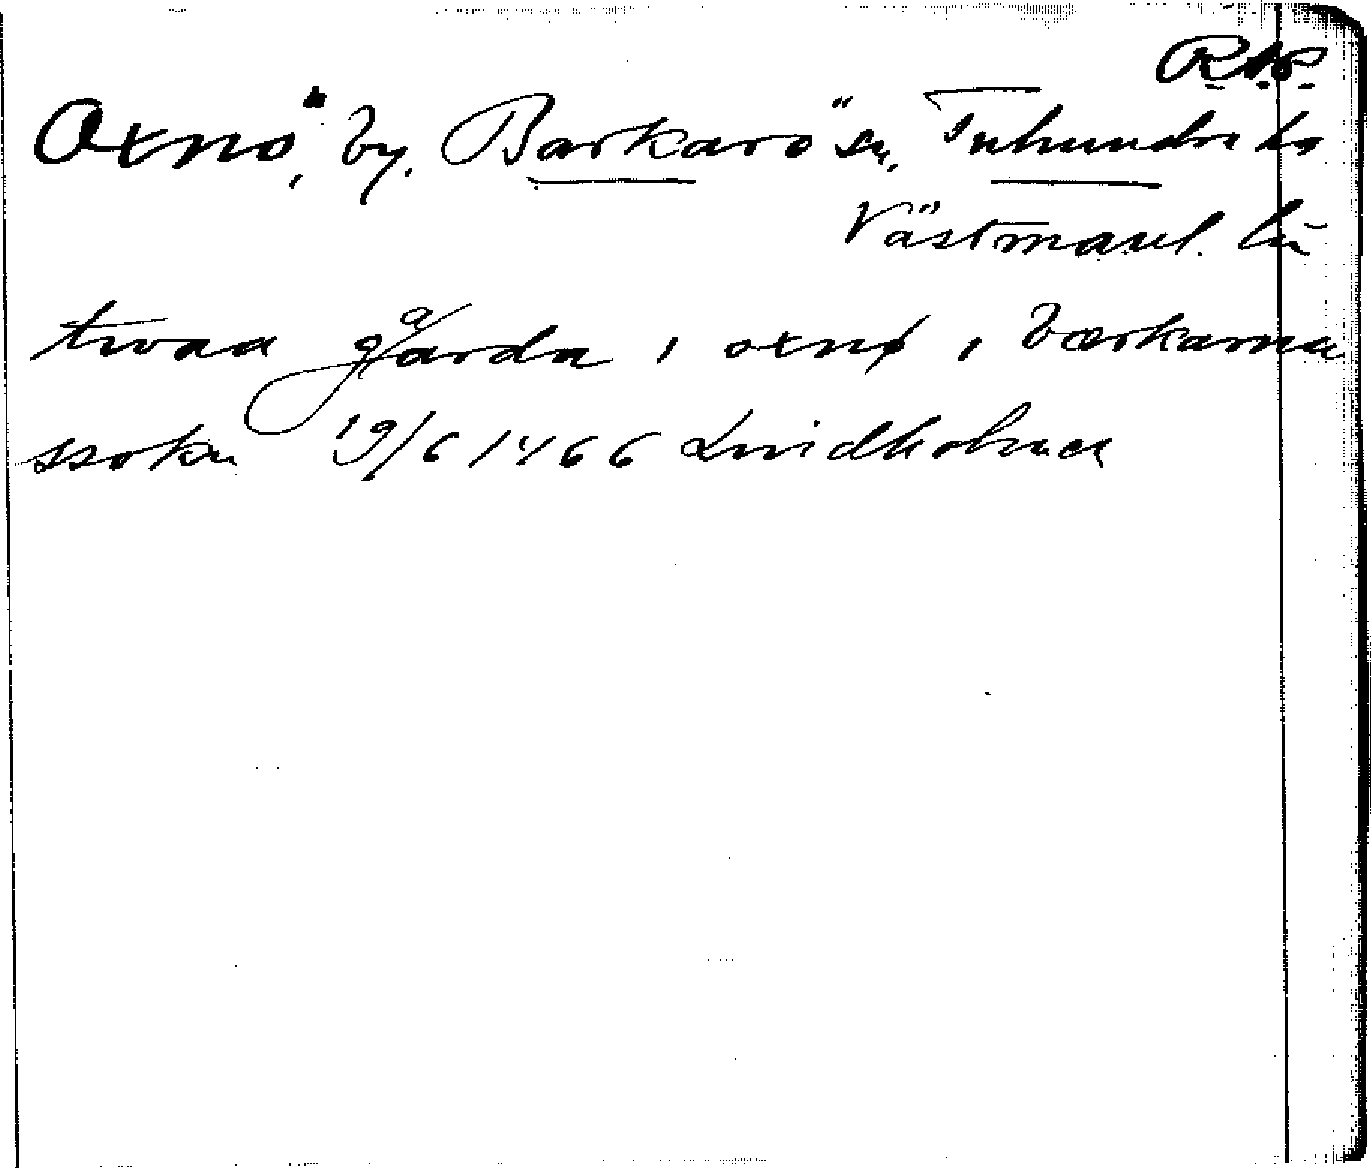 R.A.P.
Oxnö, by. Barkarö sn, Tuhundra hd
Västmanl. län
twaa gaarda i oxnø i bærkarna
ssokn 19/6 1466 Lindholmen